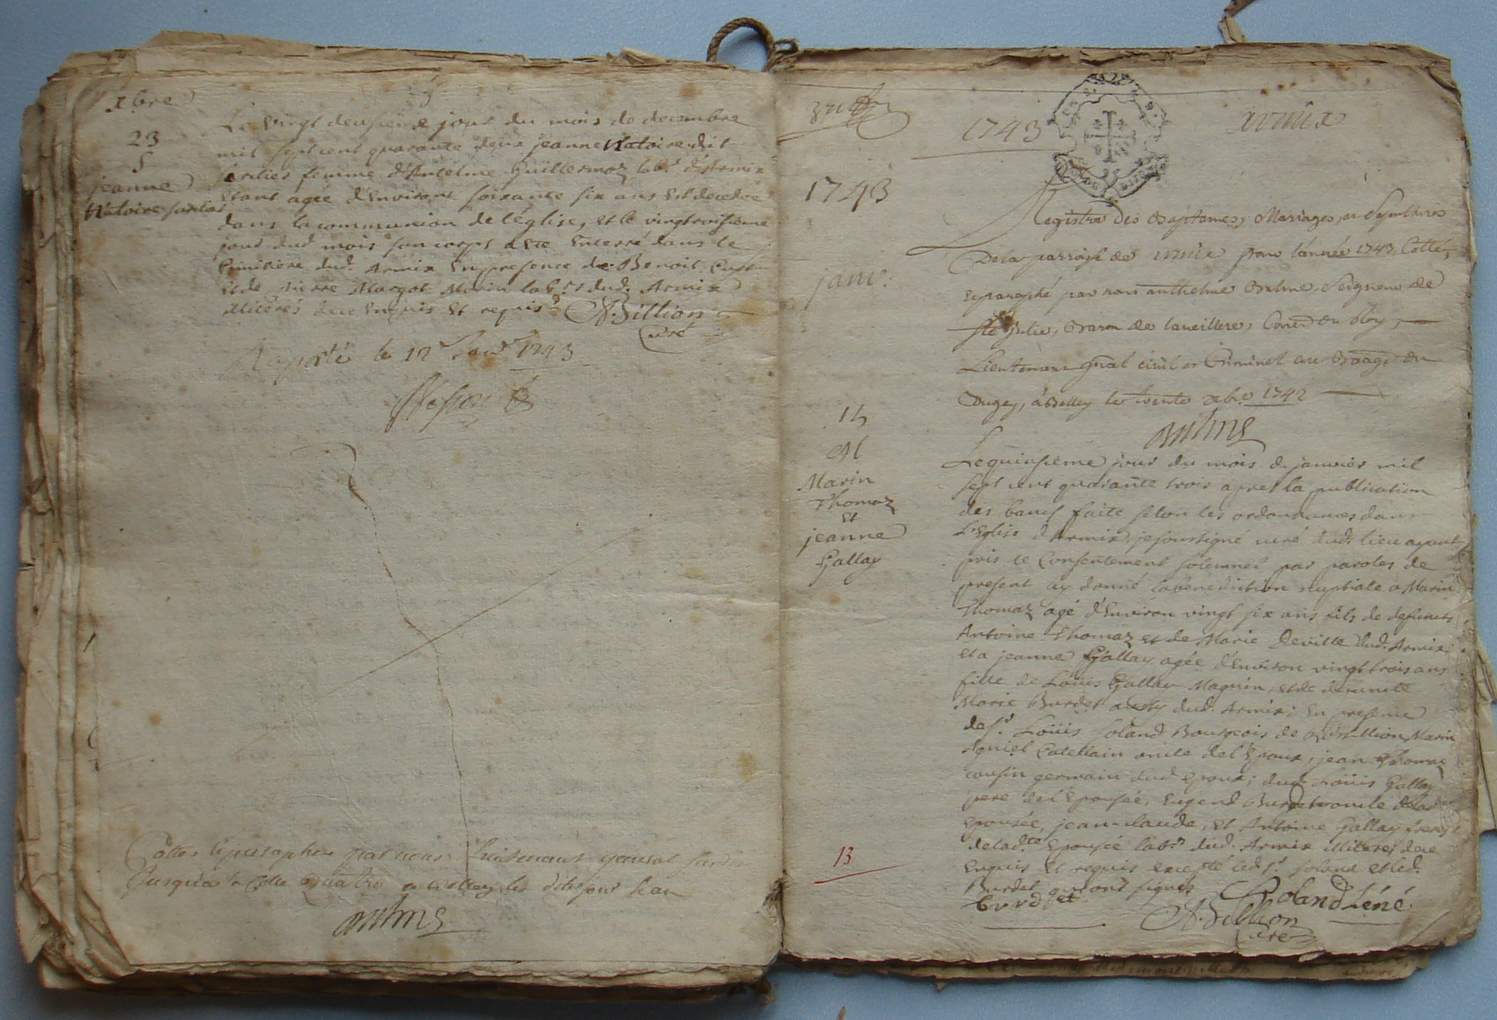 xbre
23
S
jeanne
Natoire
Le vingt deusieme jour du mois de decembre
mil sept cent quarante deux jeanne Natoire dit
femme d'Antelme Guillermoz labr. d'Armix
etant agée d'Environ soixante six ans Est decedée
dans la communion de l'église, et le vingtroisieme
jour dud. mois son corps a Ete Enterré dans le
Cimitiere dud. Armix En presence de Benoit
et de pierre Margot Marin labrs. dud. Armix
illiterés de ce Enquis Et requis. A. Billion
curé
Raporté le 17 Janr. 1743
Cotté et paraphé par nous Lieutenant general
jusqu'à la Cotte quatre a Belley les dits jour et an
1743
armix
1743
Registre des Baptemes, Mariages, et Sepultures
De la parroisse de armix pour l'année 1743, Cotté,
et paraphé par nous anthelme Seigneur de
ste julie, Baron de
Lieutenant gnal civil et Criminel au Baage du
Bugey, à Belley le trente xbre 1742
janv.
15
M
Marin
Thomaz
Et
jeanne
Gallay
Le quinsieme jour du mois de janvier mil
sept cent quarante trois apres la publication
des bancs faite selon les ordonnances dans
L'Eglise d'Armix, je soussigné curé dud. lieu ayant
pris le Consentement solemnel par paroles de
present ay donné la benediction nuptiale a Marin
Thomaz agé d'Environ vingt six ans fils de defunts
Antoine Thomaz et de Marie Deville dud. Armix
et a jeanne Gallay agée d'Environ vingt trois ans
fille de Loüis Gallay Magnin, et de defuncte
Marie Burdet dud. Armix; En presence
de sr. Loüis Roland Bourgeois de Marin
oncle de l'Epoux, jean Thomaz
cousin germain dud. Epoux; dud. Loüis Gallay
pere de l'Epousée, Eugend Burdet oncle de lad.
Epousée, jean-claude, et Antoine Gallay freres
de ladte Epousée labrs. dud. Armix illiterés de ce
Enquis Et requis excepté led. sr. Roland et led.
Burdet qui ont signés
burdet
Roland
A. Billion
curé
13